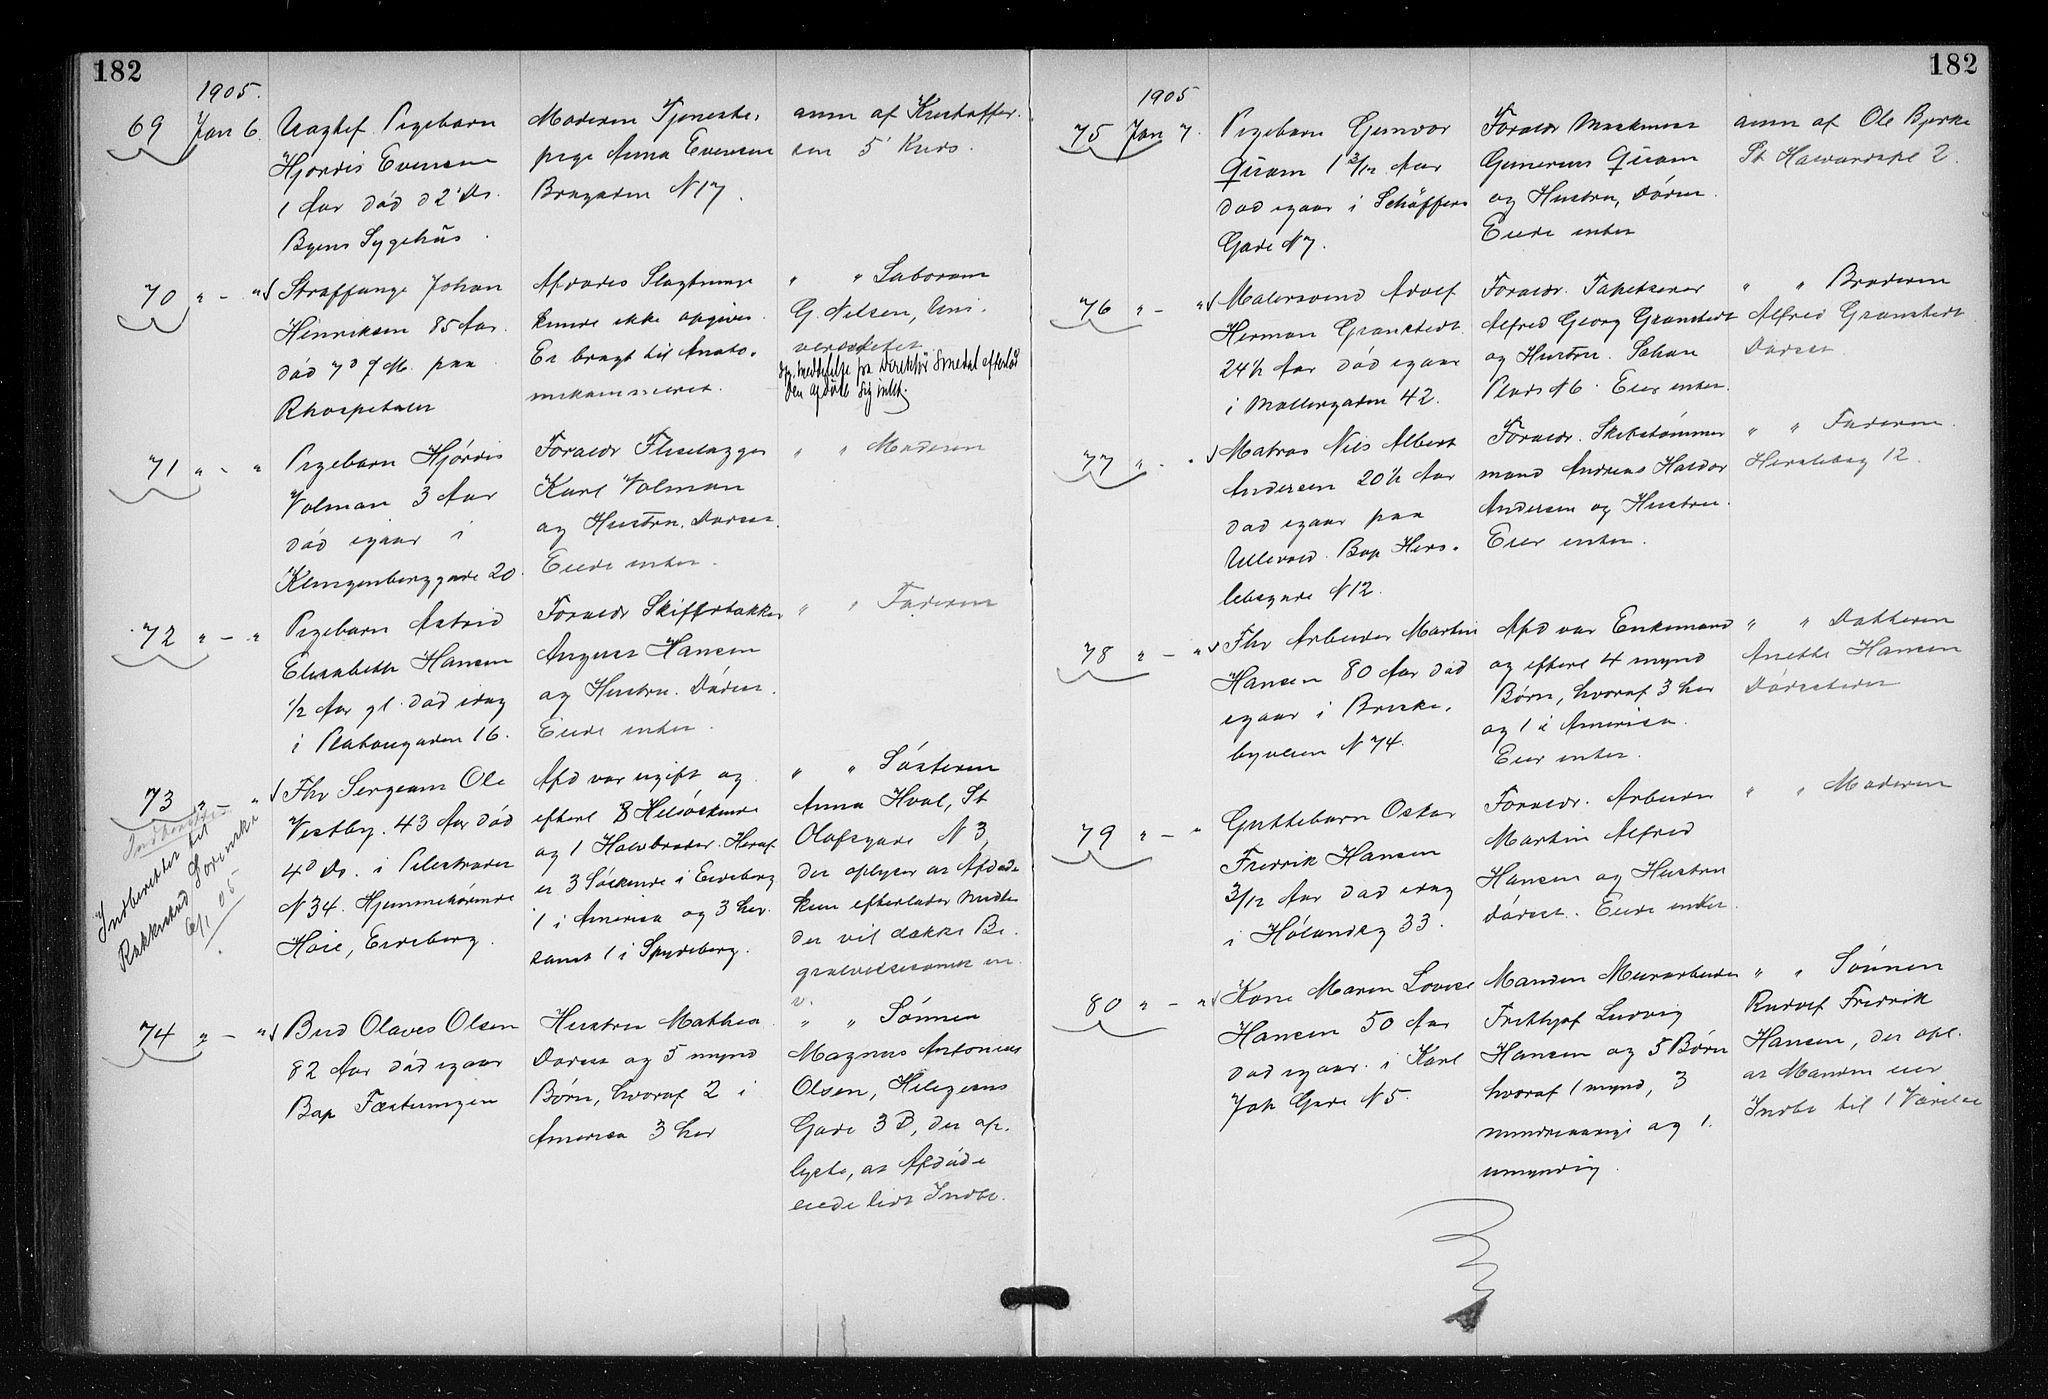 182
1905.
69 Jan 6.
Uægtef. Pigebarn
Hjørdis Evensen
1 Aar død d 2' Ds.
Byens Sygehus.
Moderen Tjeneste-
pige Anna Evensen
Brugaden N 17.
anm af Kristoffer-
sen 5' Kreds.
70 " - "
Straffange Johan
Henriksen 85 Aar.
død 7d f M. paa
Rhospitalet
Afdødes Slægtninge
kunde ikke opgives.
Er bragt til Anato-
mikammeret.
" " Laborant
G. Nilsen, Uni-
versitetet
Meddelelse fra Direktør Smedal efterlod
den afdøde sig intet.
71 " - "
Pigebarn Hjørdis
Volman 3 Aar
død igaar i
Klingenberggade 20.
Forældr
Karl Volman
og Hustru. Dørsen.
Eiede intet.
" " Moderen
72 " - "
Pigebarn Astrid
Elisabeth Hansen
1/2 Aar gl. død idag
i Platougaden 16.
Forældr Skiffertækker
August Hansen
og Hustru. Dørsen.
Eiede intet.
" " Faderen
73 " - "
Indberettet til
Rakkestad Sorenskr
6/1 05
Fhv Sergeant Ole
Vestby. 43 Aar død
4d Ds. i Pilestrædet
N 34. Hjemmehørende
Høie, Eidsberg.
Afd var ugift og
efterl 8 Helsøskende
og 1 Halvbroder. Heraf
er 3 Søskende i Eidsberg
1 i Amerika og 3 her.
samt 1 i Spydeberg.
" " Søsteren
Anna Hval, St
Olafsgade N 3
der oplyser at Afdøde
kun efterlader Midler
der vil dække Be-
gravelsesomk
74 " - "
Bud Olaves Olsen
82 Aar død igaar
Bop Fæstningen
Hustru Mathea
Dørsen og 5 mynd
Børn, hvoraf 2 i
Amerika 3 her
" " Sønnen
Magnus Antonius
Olsen,
Gade 3 B, der op-
lyste, at Afdøde
eiede lidt Indbo.
182
1905
75 Jan 7.
Pigebarn Gunvor
Quam 1 3/12 Aar
død igaar i Schøffers
Gade N 7.
Forældr Maskinist
Gunerius Quam
og Hustru, Dørsen.
Eiede intet
anm af Ole Bjerke
St Halvardspl 2.
76 " - "
Malersvend Adolf
Herman Granstedt
24 1/2 Aar død igaar
i Møllergaden 42.
Forældr. Tapetserer
Alfred Georg Granstedt
og Hustru. Schous
Plads N 6. Eier intet.
" " Broderen
Alfred Granstedt
Dørsted.
77 " - "
Matros Nils Albert
Andersen 20 1/2 Aar
død igaar paa
Ullevold. Bop Hers-
lebsgade N 12.
Forældr. Skibstømmer
mand Andreas Haldor
Andersen og Hustru.
Eier intet.
" " Faderen.
Herslebsg 12.
78 " - "
Fhv Arbeider Martin
Hansen 80 Aar død
igaar i Briske-
byveien N 74.
Afd var Enkemand
og efterl 4 mynd
Børn, hvoraf 3 her
og 1 i Amerika.
Eier intet.
" " Datteren
Anette Hansen
Dørstedet
79 " - "
Guttebarn Oskar
Fredrik Hansen
3/12 Aar død idag
i Hølandsg 33.
Forældr. Arbeider
Martin Alfred
Hansen og Hustru
dørsted. Eiede intet.
" " Moderen
80 " - "
Kone Maren Lovise
Hansen 50 Aar
død igaar. i Karl
Joh Gade N 5.
Manden Murarbeider
Frithjof Ludvig
Hansen og 5 Børn
hvoraf 1 mynd, 3
mindreaarige og 1.
umyndig.
" " Sønnen
Rudolf Fredrik
Hansen, der opl.
at Manden eier
Indbo til 1 Værelse